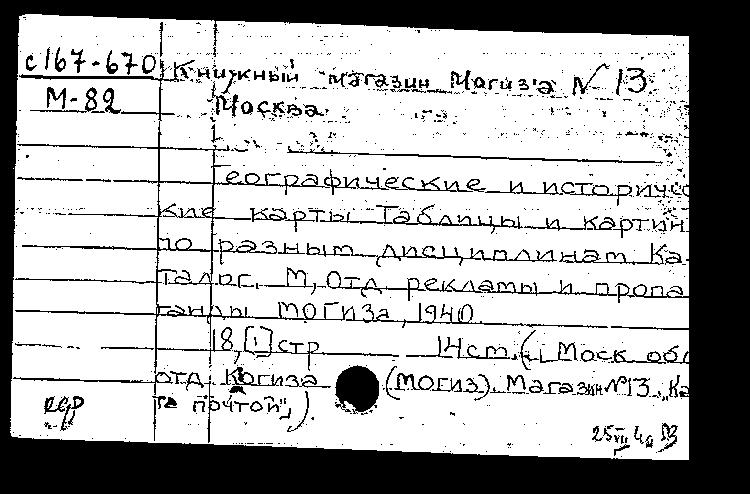 с167-670 Книжный магазин Могиз'а № 13
М-82 Москва
Географические и историчес
кие карты Таблицы и картин
по разным дисциплинам. Ка-
талог. М, Отд. рекламы и пропа
ганды МОГИЗа, 1940.
18, [1] стр 14см. (Моск обл
отд. Когиза (МОГИЗ). Магазин №13. „Ка
та почтой",)